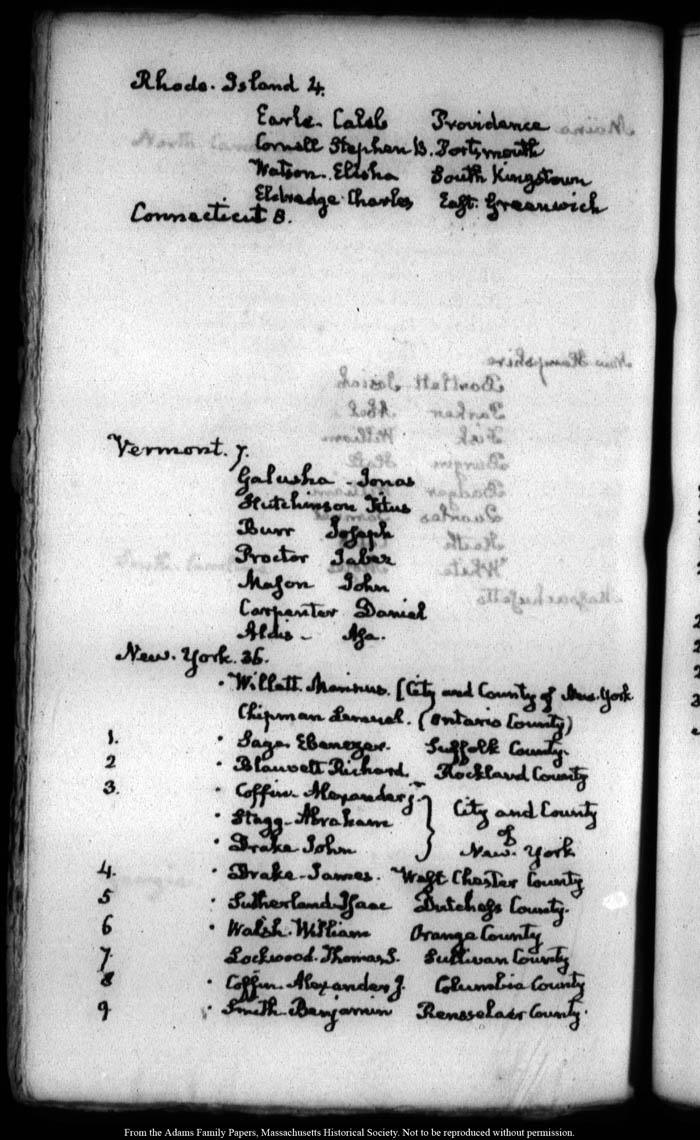 Rhode. Island 4.
Earle. Caleb Providence
Cornell Stephen B. Portsmouth
Watson. Elisha South Kingstown
Eldredge. Charles East. Greenwich
Connecticut 8.
Vermont. 7.
Galusha - Jonas
Hutchinson Titus
Burr Joseph
Proctor Jabez
Mason John
Carpenter Daniel
Aldis - Asa.
New. York. 36.
Willett. Marinus. [City and County of New. York
Chipman Lemuel. (Ontario County)
1. Sage. Ebenezer. Suffolk County.
2 Blauvelt Richard Rockland County
3. Coffin Alexander j.
Stagg. Abraham
Drake John
City and County
of
New. York
4. Drake. James. West Chester County
5 Sutherland. Isaac Dutchess County.
6 Walsh. William Orange County
7. Lockwood. Thomas S. Sullivan County
8 Coffin. Alexander J. Columbia County
9 Smith. Benjamin Rensselair County.
New Hampshire
Bartlett Josiah
Parker Abel
Fisk William
Badger William
White
Massachusetts
From the Adams Family Papers, Massachusetts Historical Society. Not to be reproduced without permission.